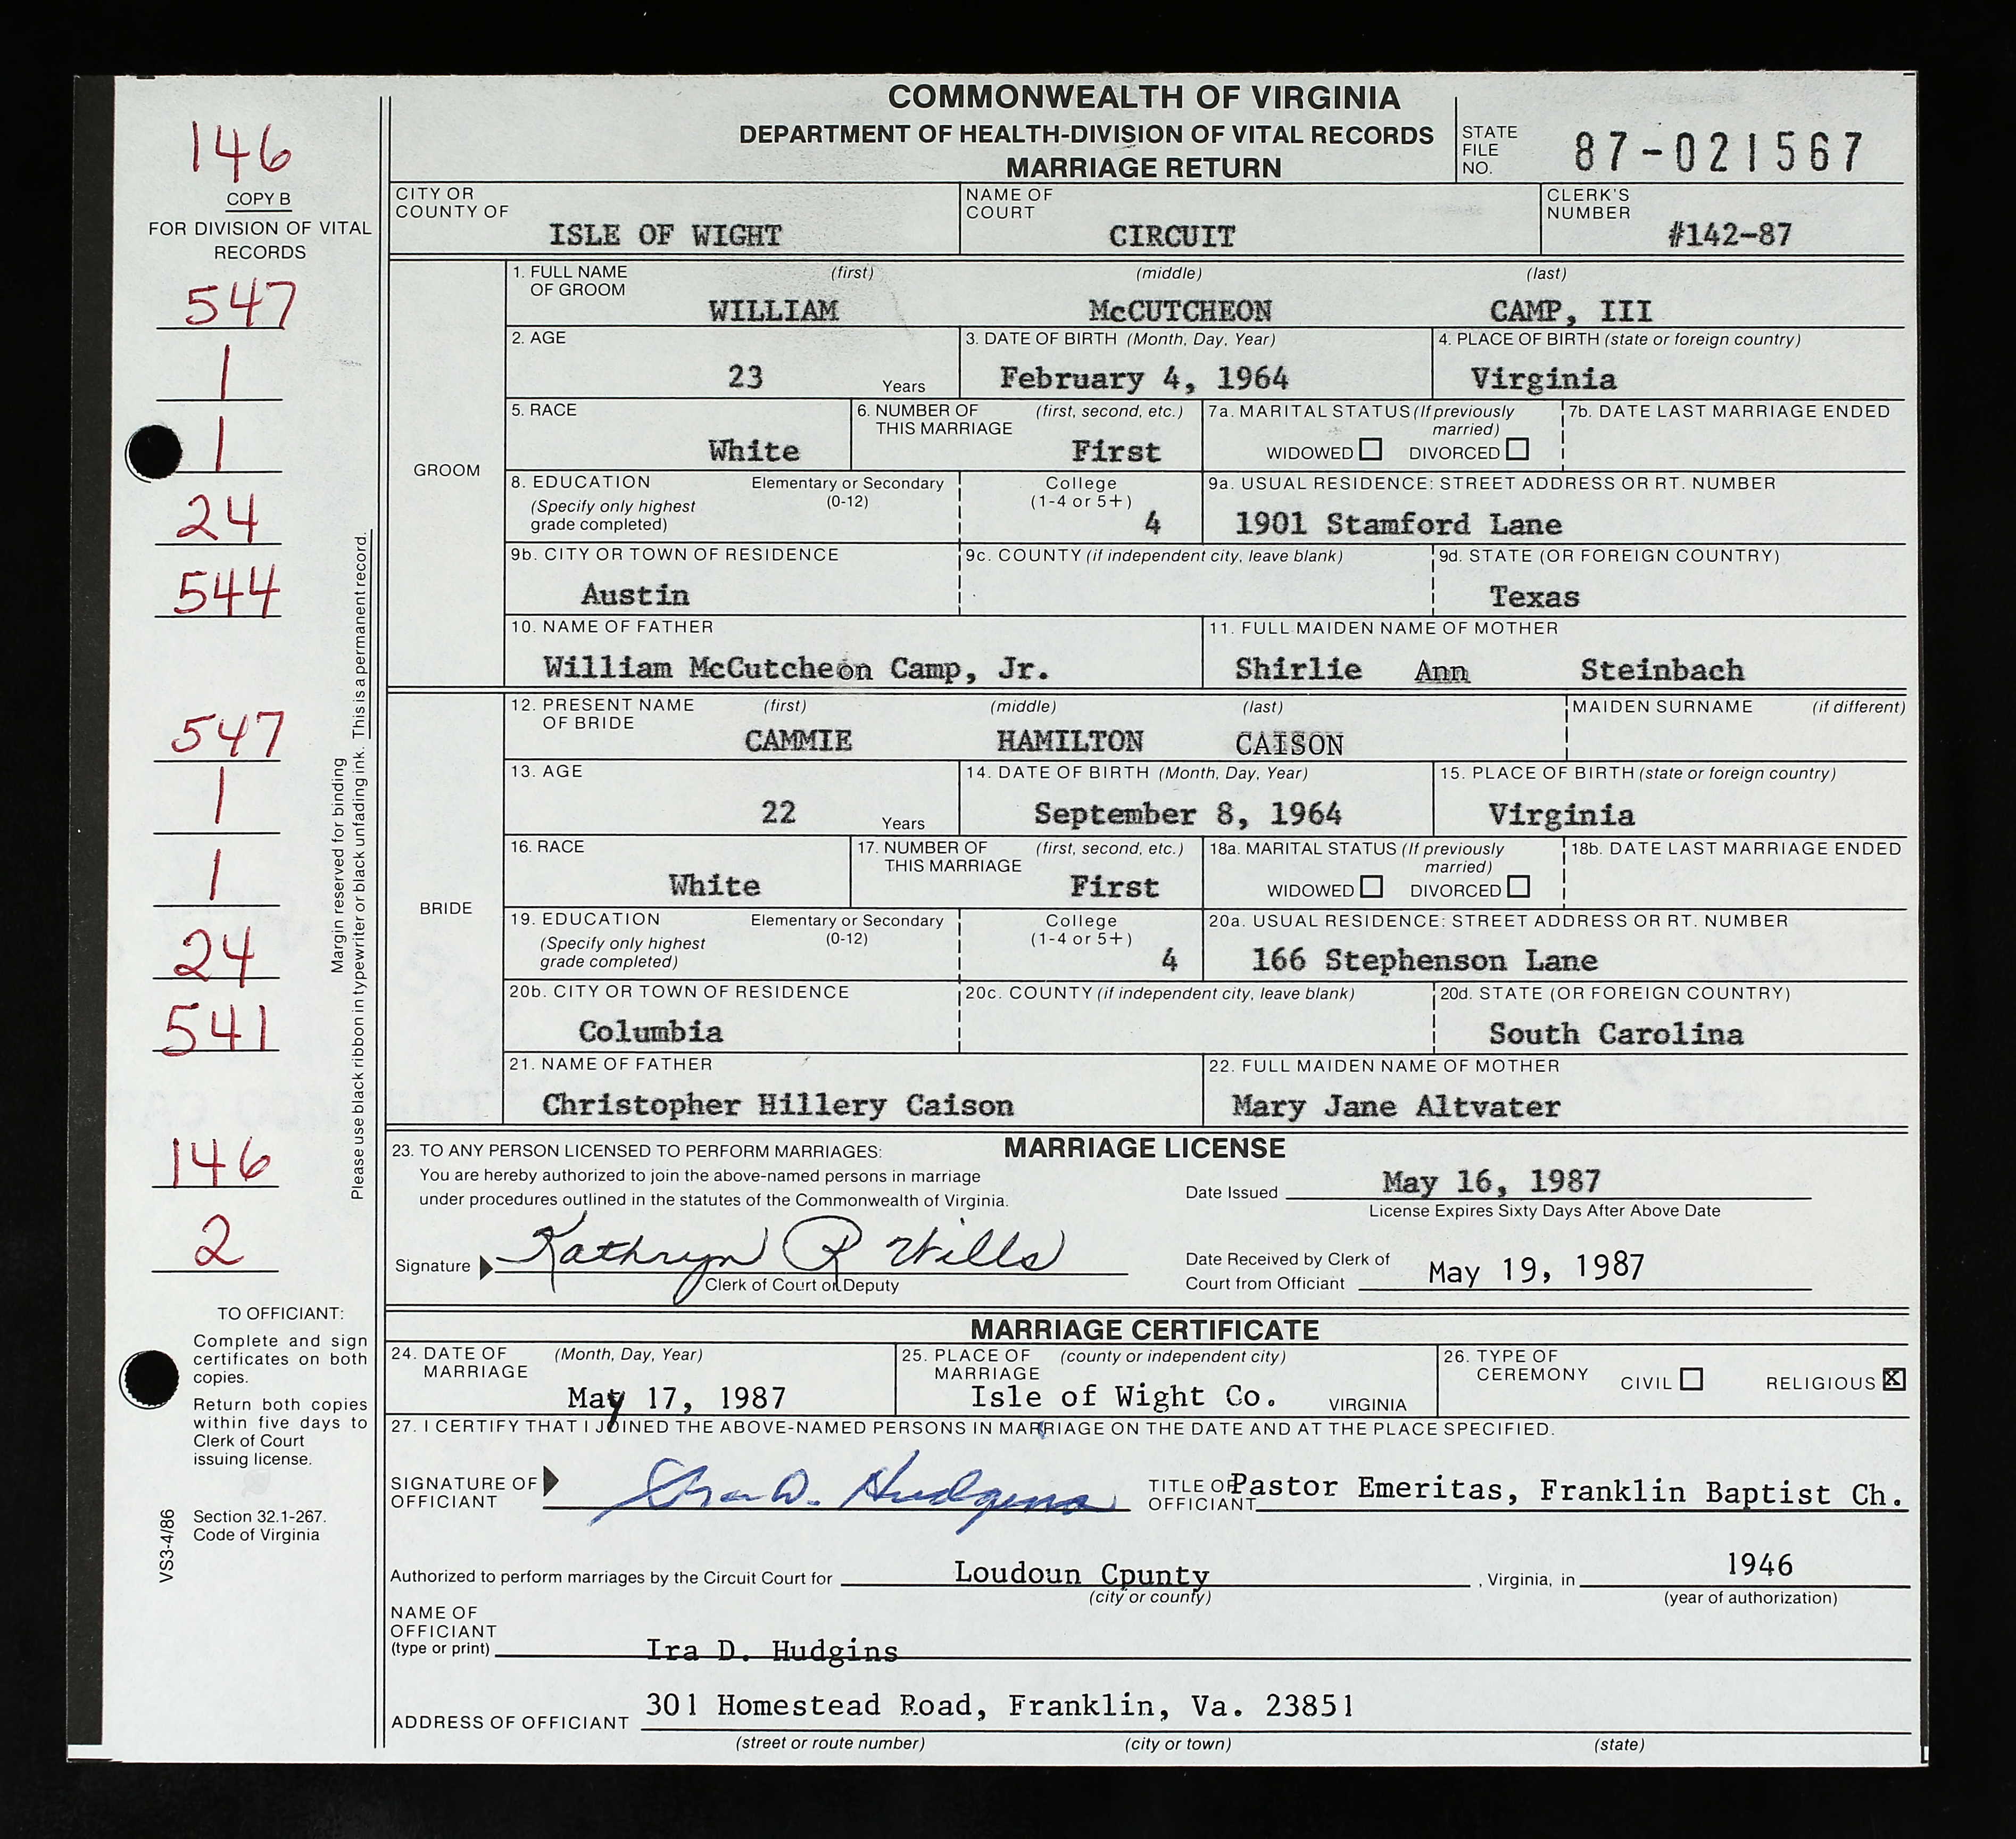 COMMONWEALTH OF VIRGINIA
DEPARTMENT OF HEALTH-DIVISION OF VITAL RECORDS
MARRIAGE RETURN
STATE FILE NO. 87-021567
146
COPY B
FOR DIVISION OF VITAL RECORDS
547
1
1
24
544
547
1
1
24
541
146
2
Margin reserved for binding
Please use black ribbon in typewriter or black unfading ink. This is a permanent record.
TO OFFICIANT:
Complete and sign
certificates on both
copies.
Return both copies
within five days to
Clerk of Court
issuing license.
Section 32.1-267.
Code of Virginia
VS3-4/86
CITY OR COUNTY OF ISLE OF WIGHT
NAME OF COURT CIRCUIT
CLERK'S NUMBER #142-87
GROOM
1. FULL NAME OF GROOM (first) WILLIAM (middle) McCUTCHEON (last) CAMP, III
2. AGE 23 Years
3. DATE OF BIRTH (Month, Day, Year) February 4, 1964
4. PLACE OF BIRTH (state or foreign country) Virginia
5. RACE White
6. NUMBER OF THIS MARRIAGE (first, second, etc.) First
7a. MARITAL STATUS (If previously married) WIDOWED DIVORCED
7b. DATE LAST MARRIAGE ENDED
8. EDUCATION (Specify only highest grade completed) Elementary or Secondary (0-12) College (1-4 or 5+) 4
9a. USUAL RESIDENCE: STREET ADDRESS OR RT. NUMBER 1901 Stamford Lane
9b. CITY OR TOWN OF RESIDENCE Austin
9c. COUNTY (if independent city, leave blank)
9d. STATE (OR FOREIGN COUNTRY) Texas
10. NAME OF FATHER William McCutcheon Camp, Jr.
11. FULL MAIDEN NAME OF MOTHER Shirlie Ann Steinbach
BRIDE
12. PRESENT NAME OF BRIDE (first) CAMMIE (middle) HAMILTON (last) CAISON
MAIDEN SURNAME (if different)
13. AGE 22 Years
14. DATE OF BIRTH (Month, Day, Year) September 8, 1964
15. PLACE OF BIRTH (state or foreign country) Virginia
16. RACE White
17. NUMBER OF THIS MARRIAGE (first, second, etc.) First
18a. MARITAL STATUS (If previously married) WIDOWED DIVORCED
18b. DATE LAST MARRIAGE ENDED
19. EDUCATION (Specify only highest grade completed) Elementary or Secondary (0-12) College (1-4 or 5+) 4
20a. USUAL RESIDENCE: STREET ADDRESS OR RT. NUMBER 166 Stephenson Lane
20b. CITY OR TOWN OF RESIDENCE Columbia
20c. COUNTY (if independent city, leave blank)
20d. STATE (OR FOREIGN COUNTRY) South Carolina
21. NAME OF FATHER Christopher Hillery Caison
22. FULL MAIDEN NAME OF MOTHER Mary Jane Altvater
23. TO ANY PERSON LICENSED TO PERFORM MARRIAGES: MARRIAGE LICENSE
You are hereby authorized to join the above-named persons in marriage
under procedures outlined in the statutes of the Commonwealth of Virginia.
Date Issued May 16, 1987
License Expires Sixty Days After Above Date
Signature Kathryn R Wills
Clerk of Court or Deputy
Date Received by Clerk of Court from Officiant May 19, 1987
MARRIAGE CERTIFICATE
24. DATE OF MARRIAGE (Month, Day, Year) May 17, 1987
25. PLACE OF MARRIAGE (county or independent city) Isle of Wight Co. VIRGINIA
26. TYPE OF CEREMONY CIVIL RELIGIOUS X
27. I CERTIFY THAT I JOINED THE ABOVE-NAMED PERSONS IN MARRIAGE ON THE DATE AND AT THE PLACE SPECIFIED.
SIGNATURE OF OFFICIANT Ira D. Hudgins
TITLE OF OFFICIANT Pastor Emeritas, Franklin Baptist Ch.
Authorized to perform marriages by the Circuit Court for Loudoun Cpunty , Virginia, in 1946
(city or county) (year of authorization)
NAME OF OFFICIANT (type or print) Ira D. Hudgins
ADDRESS OF OFFICIANT 301 Homestead Road, Franklin, Va. 23851
(street or route number) (city or town) (state)